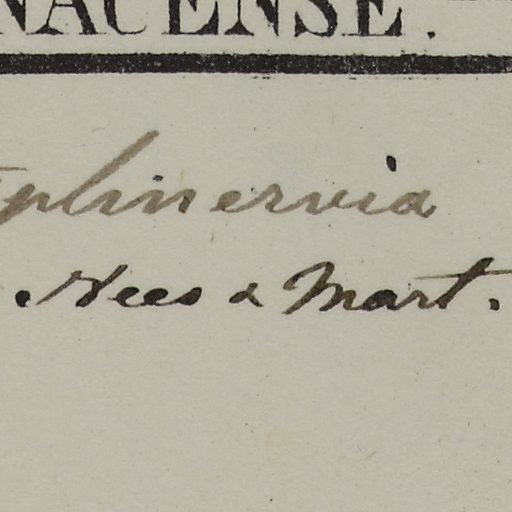 NACENSE.
plinervia
Nees & Mart.